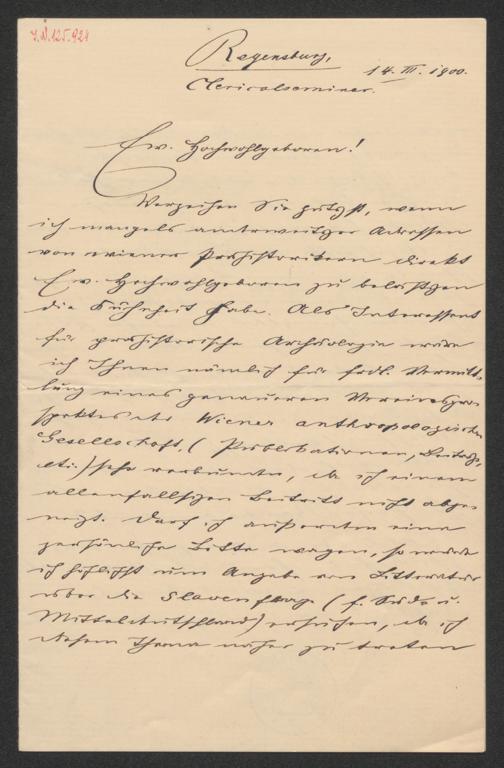 J.N. 125.924
Regensburg,
14. III. 1900.
Clericalseminar.
Ew. Hochwohlgeboren!
Verzeihen Sie gütigst, wenn
ich mangels anderweitiger Adressen
von wiener Prähistorikern direkt
Ew. Hochwohlgeboren zu belästigen
die Kühnheit habe. Als Interessent
für prähistorische Archäologie wäre
ich Ihnen nämlich für frdl. Vermitt-
lung eines genaueren Vereinspro-
spektes der Wiener anthropologischen
Gesellschaft, (Publikationen, Beiträge,
etc.) sehr verbunden, da ich einem
allenfallsigen Beitritt nicht abge-
neigt. Darf ich außerdem eine
persönliche Bitte wagen, so würde
ich höflichst um Angabe von Litteratur
über die Slavenfrage (f. Süd- u.
Mitteldeutschland) ersuchen, da ich
diesem Thema näher zu treten